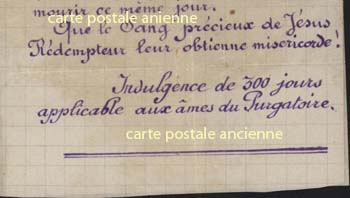 mourir ce même jour.
carte postale ancienne
Que le Sang précieux de Jésus
Rédempteur leur obtienne miséricorde!
Indulgence de 300 jours
applicable aux âmes du Purgatoire.
carte postale ancienne